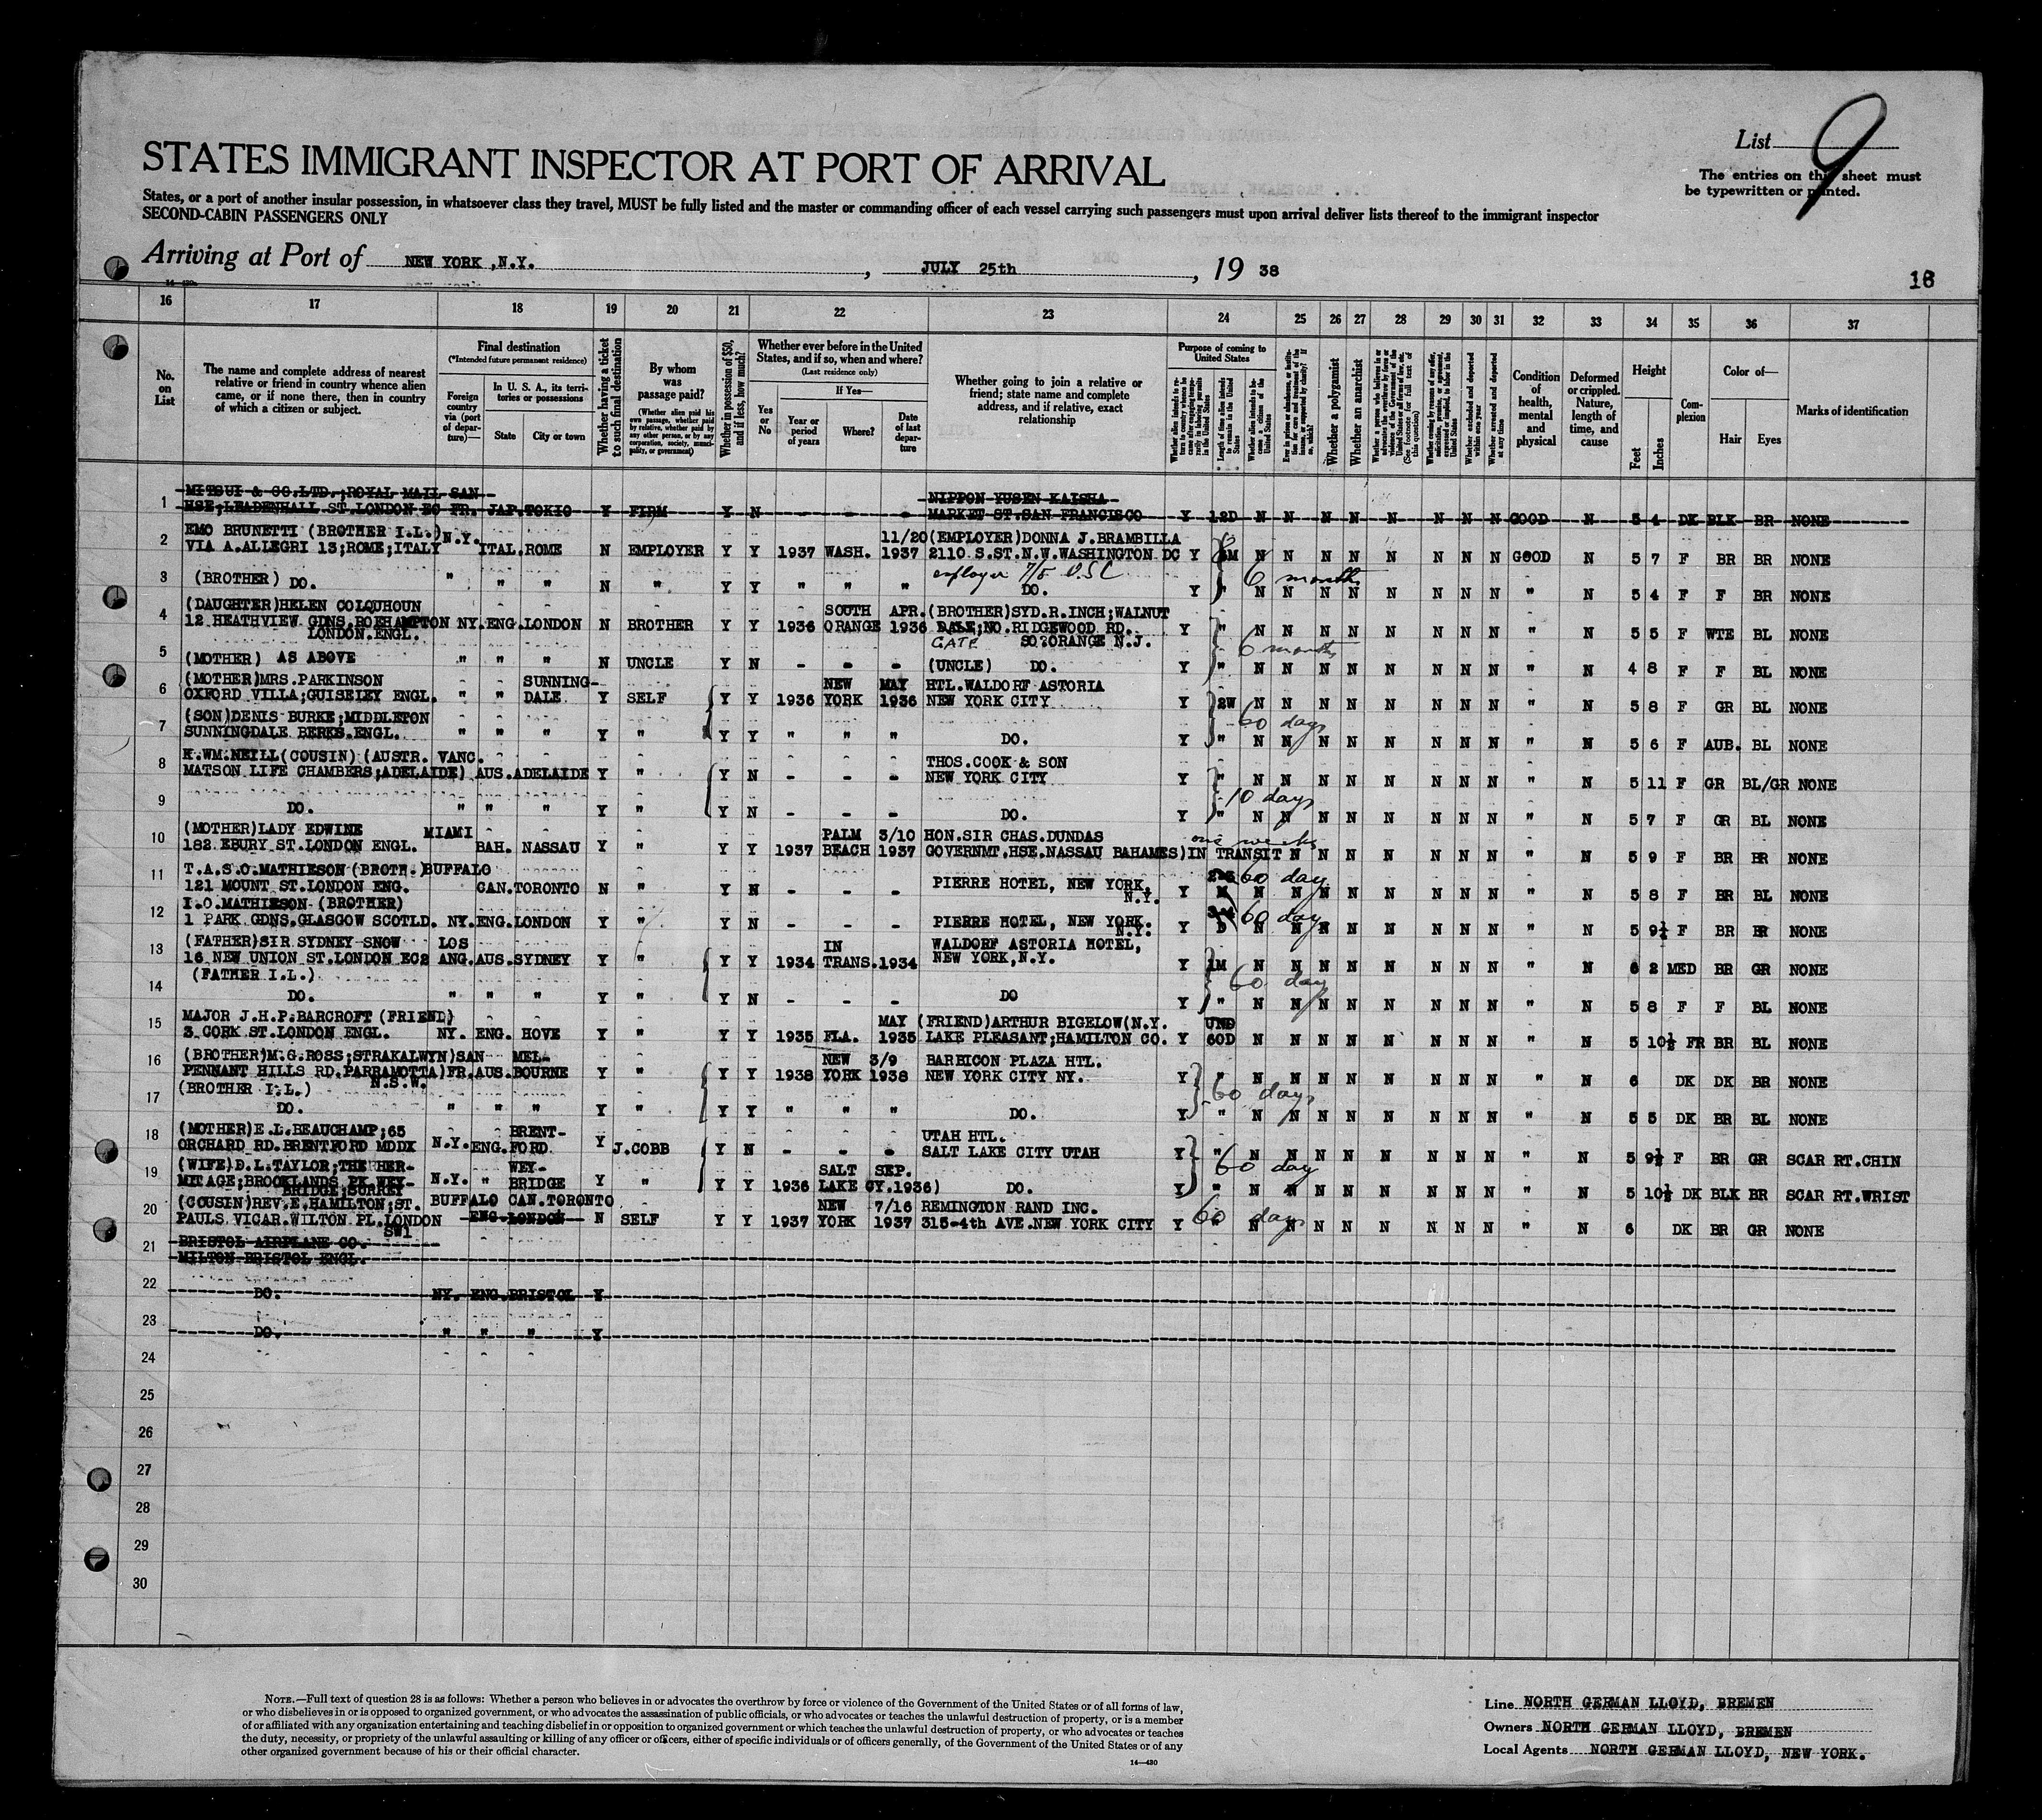 List 9
STATES IMMIGRANT INSPECTOR AT PORT OF ARRIVAL
The entries on this sheet must
be typewritten or printed.
States, or a port of another insular possession, in whatsoever class they travel, MUST be fully listed and the master or commanding officer of each vessel carrying such passengers must upon arrival deliver lists thereof to the immigrant inspector
SECOND-CABIN PASSENGERS ONLY
Arriving at Port of NEW YORK ,N.Y. , JULY 25th , 19 38
16
16 17 18 19 20 21 22 23 24 25 26 27 28 29 30 31 32 33 34 35 36 37
No. on List
The name and complete address of nearest relative or friend in country whence alien came, or if none there, then in country of which a citizen or subject.
Final destination
(*Intended future permanent residence)
Foreign country via (port of departure)—
In U. S. A., its territories or possessions
State
City or town
Whether having a ticket to such final destination
By whom was passage paid?
(Whether alien paid his own passage, whether paid by relative, whether paid by any other person, or by any corporation, society, municipality, or government)
Whether in possession of $50, and if less, how much?
Whether ever before in the United States, and if so, when and where?
(Last residence only)
Yes or No
If Yes—
Year or period of years
Where?
Date of last departure
Whether going to join a relative or friend; state name and complete address, and if relative, exact relationship
Purpose of coming to United States
Whether a polygamist
Whether an anarchist
(See footnote for full text of this question)
Whether excluded and deported within one year
Whether arrested and deported at any time
Condition of health, mental and physical
Deformed or crippled. Nature, length of time, and cause
Height
Feet
Inches
Complexion
Color of—
Hair
Eyes
Marks of identification
MITSUI & CO.LTD.;ROYAL MAIL SAN NIPPON YUSEN KAISHA
1 HSE;LEADENHALL ST.LONDON EC FR. JAP.TOKIO Y FIRM Y N - - - MARKET ST.SAN FRANCISCO Y 12D N N N N N N N N GOOD N 5 4 DK BLK BR NONE
EMO BRUNETTI (BROTHER I.L.) N.Y. 11/20 (EMPLOYER)DONNA J.BRAMBILLA
2 VIA A.ALLEGRI 13;ROME;ITALY ITAL.ROME N EMPLOYER Y Y 1937 WASH. 1937 2110 S.ST.N.W.WASHINGTON DC Y 6M N N N N N N N N GOOD N 5 7 F BR BR NONE
employer 7/5 USC 6 months
3 (BROTHER) DO. " " " N " Y Y " " " DO. Y " N N N N N N N N " N 5 4 F F BR NONE
(DAUGHTER)HELEN COLQUHOUN SOUTH APR. (BROTHER)SYD.R.INCH;WALNUT
4 12 HEATHVIEW GDNS.ROEHAMPTON NY.ENG.LONDON N BROTHER Y Y 1936 ORANGE 1936 DALE;NO.RIDGEWOOD RD. Y " N N N N N N N N " N 5 5 F WTE BL NONE
LONDON.ENGL. GATE SO.ORANGE N.J. 6 months
5 (MOTHER) AS ABOVE " " " N UNCLE Y N - - - (UNCLE) DO. Y " N N N N N N N N " N 4 8 F F BL NONE
(MOTHER)MRS.PARKINSON SUNNING- NEW MAY HTL.WALDORF ASTORIA
6 OXFORD VILLA;GUISELEY ENGL. " " DALE Y SELF Y Y 1936 YORK 1936 NEW YORK CITY Y 2W N N N N N N N N " N 5 8 F GR BL NONE
(SON)DENIS BURKE;MIDDLETON 60 days
7 SUNNINGDALE BERKS.ENGL. " " " Y " Y Y " " " DO. Y " N N N N N N N N " N 5 6 F AUB. BL NONE
K.WM.NEILL(COUSIN)(AUSTR. VANC. THOS.COOK & SON
8 MATSON LIFE CHAMBERS;ADELAIDE) AUS.ADELAIDE Y " Y N - - - NEW YORK CITY Y " N N N N N N N N " N 5 11 F GR BL/GR NONE
10 days
9 DO. " " " Y " Y N - - - DO. Y " N N N N N N N N " N 5 7 F GR BL NONE
(MOTHER)LADY EDWINE MIAMI PALM 3/10 HON.SIR CHAS.DUNDAS one week
10 182.EBURY ST.LONDON ENGL. BAH. NASSAU Y " Y Y 1937 BEACH 1937 GOVERNMT.HSE.NASSAU BAHAMES)IN TRANSIT N N N N N N N " N 5 9 F BR BR NONE
T.A.S.O.MATHIESON(BROTH. BUFFALO 60 days
11 121 MOUNT ST.LONDON ENG. CAN.TORONTO N " Y N - - - PIERRE HOTEL, NEW YORK, N.Y. Y M N N N N N N N N " N 5 8 F BR BL NONE
I.O.MATHIESON (BROTHER) 60 days
12 1 PARK GDNS.GLASGOW SCOTLD. NY.ENG.LONDON Y " Y N - - - PIERRE HOTEL, NEW YORK. N.Y. Y D N N N N N N N N " N 5 9½ F BR BR NONE
(FATHER)SIR SYDNEY SNOW LOS IN WALDORF ASTORIA HOTEL,
13 16 NEW UNION ST.LONDON EC2 ANG.AUS.SYDNEY Y " Y Y 1934 TRANS.1934 NEW YORK,N.Y. Y 1M N N N N N N N N " N 6 2 MED BR GR NONE
(FATHER I.L.) 60 days
14 DO. " " " Y " Y N - - - DO Y " N N N N N N N N " N 5 8 F F BL NONE
MAJOR J.H.P.BARCROFT (FRIEND) MAY (FRIEND)ARTHUR BIGELOW(N.Y. UND
15 3 CORK ST.LONDON ENGL. NY. ENG. HOVE Y " Y Y 1935 FLA. 1935 LAKE PLEASANT;HAMILTON CO. Y 60D N N N N N N N N " N 5 10½ FR BR BL NONE
(BROTHER)M.G.ROSS;STRAKALWYN)SAN MEL- NEW 3/9 BARBICON PLAZA HTL.
16 PENNANT HILLS RD.PARRAMOTTA)FR.AUS.BOURNE Y " Y Y 1938 YORK 1938 NEW YORK CITY NY. Y " N N N N N N N N " N 6 DK DK BR NONE
(BROTHER I.L.) N.S.W. 60 days
17 DO. " " " Y " Y Y " " " DO. Y " N N N N N N N N " N 5 5 DK BR BL NONE
(MOTHER)E.L.BEAUCHAMP;65 BRENT- UTAH HTL.
18 ORCHARD RD.BRENTFORD MDDX N.Y.ENG.FORD. Y J.COBB Y N - - - SALT LAKE CITY UTAH Y " N N N N N N N N " N 5 9½ F BR GR SCAR RT.CHIN
(WIFE)D.L.TAYLOR;THE HER- WEY- SALT SEP. 60 days
19 MITAGE;BROOKLANDS PK.WEY- N.Y. " BRIDGE Y " Y Y 1936 LAKE CY.1936) DO. Y " N N N N N N N N " N 5 10½ DK BLK BR SCAR RT.WRIST
BRIDGE;SURREY
(COUSIN)REV.E.HAMILTON;ST. BUFFALO CAN.TORONTO NEW 7/16 REMINGTON RAND INC.
20 PAULS VICAR.WILTON PL.LONDON ENG.LONDON N SELF Y Y 1937 YORK 1937 315-4th AVE.NEW YORK CITY Y 60 days " N N N N N N N N " N 6 DK BR GR NONE
SW1
21 BRISTOL AIRPLANE CO.
MILTON BRISTOL ENGL.
22 DO. NY. ENG.BRISTOL Y
23 DO. " " " Y
24
25
26
27
28
29
30
NOTE.—Full text of question 28 is as follows: Whether a person who believes in or advocates the overthrow by force or violence of the Government of the United States or of all forms of law,
or who disbelieves in or is opposed to organized government, or who advocates the assassination of public officials, or who advocates or teaches the unlawful destruction of property, or is a member
of or affiliated with any organization entertaining and teaching disbelief in or opposition to organized government or which teaches the unlawful destruction of property, or who advocates or teaches
the duty, necessity, or propriety of the unlawful assaulting or killing of any officer or officers, either of specific individuals or of officers generally, of the Government of the United States or of any
other organized government because of his or their official character.
14—430
Line NORTH GERMAN LLOYD, BREMEN
Owners NORTH GERMAN LLOYD, BREMEN
Local Agents NORTH GERMAN LLOYD, NEW YORK.